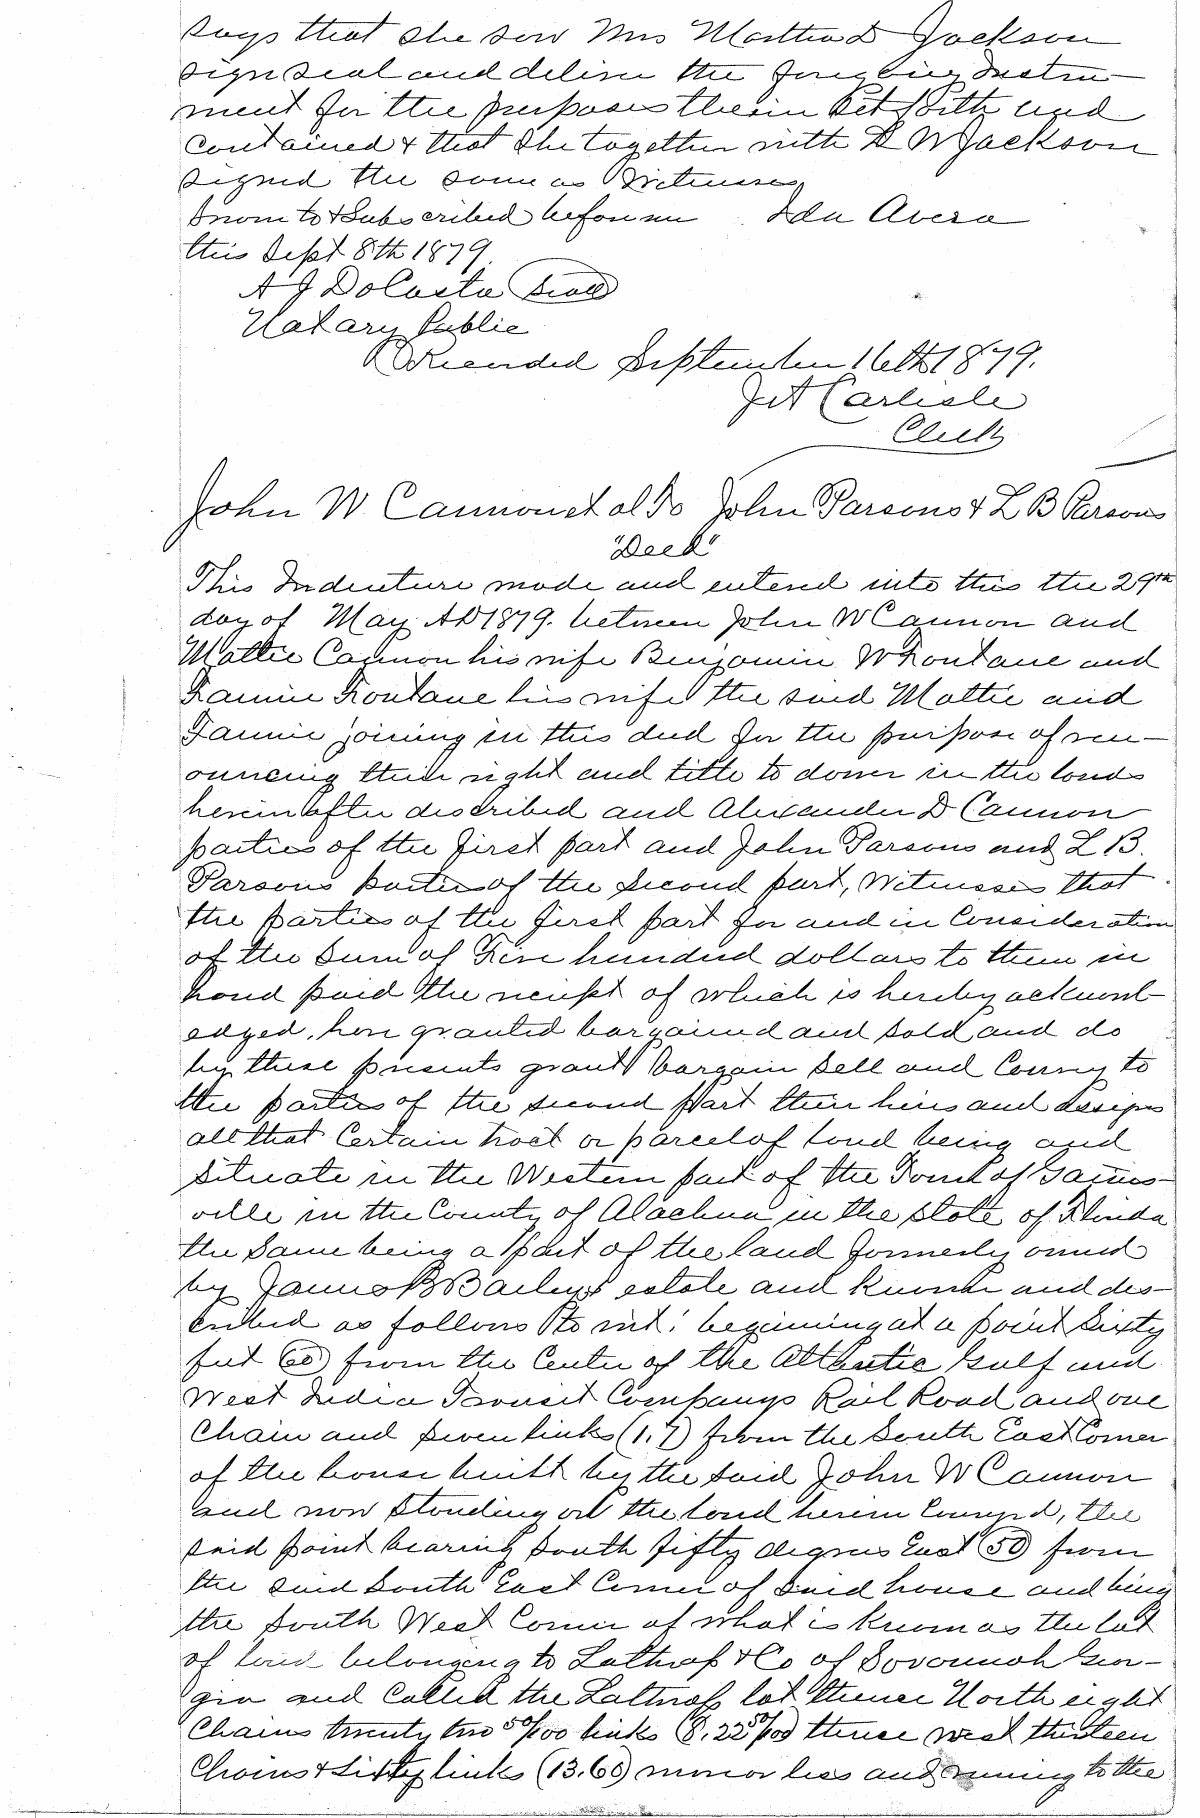 says that she saw Mrs Martha D Jackson
sign seal and deliver the foregoing Instru-
ment for the purposes therein Set forth and
contained & that She together with D W Jackson
signed the same as Witnesses
Sworn to & Subscribed before me Ida Avera
this Sept 8th 1879.
A J DaCosta Seal
Notary Public
Recorded September 16th 1879.
J A Carlisle
Clerk
John W Cannon et al To John Parsons & L B Parsons
"Deed"
This Indenture made and entered into this the 29th
day of May AD 1879. between John W Cannon and
Mattie Cannon his wife Benjamin W Fontane and
Fannie Fontane his wife the said Mattie and
Fannie joining in this deed for the purpose of ren-
ouncing their right and title to dower in the lands
herein after described and Alexander D Cannon
parties of the first part and John Parsons and L B.
Parsons parties of the Second part, Witnesses that
the parties of the first part for and in Consideration
of the Sum of Five hundred dollars to them in
hand paid the receipt of which is hereby acknowl-
edged, have granted bargained and Sold and do
by these presents grant bargain Sell and Convey to
the parties of the second part their heirs and assigns
all that Certain tract or parcel of land being and
Situate in the Western part of the Town of Gaines-
ville in the County of Alachua in the State of Florida
the Same being a part of the land formerly owned
by James B Bailey's estate and known and des-
cribed as follows to wit: beginning at a point Sixty
feet (60) from the Center of the Atlantic Gulf and
West India Transit Companys Rail Road and one
Chain and Seven links (1.7) from the South East Corner
of the house built by the said John W Cannon
and now Standing on the land herein Conveyed, the
said point bearing South fifty degrees East (50) from
the said South East Corner of Said house and being
the South West Corner of what is known as the lot
of land belonging to Lathrop & Co of Savannah Geor-
gia and Called the Lathrop lot thence North eight
Chains twenty two 50/100 links (8.22 50/100) thence west thirteen
Chains & Sixty links (13.60) more or less and running to the